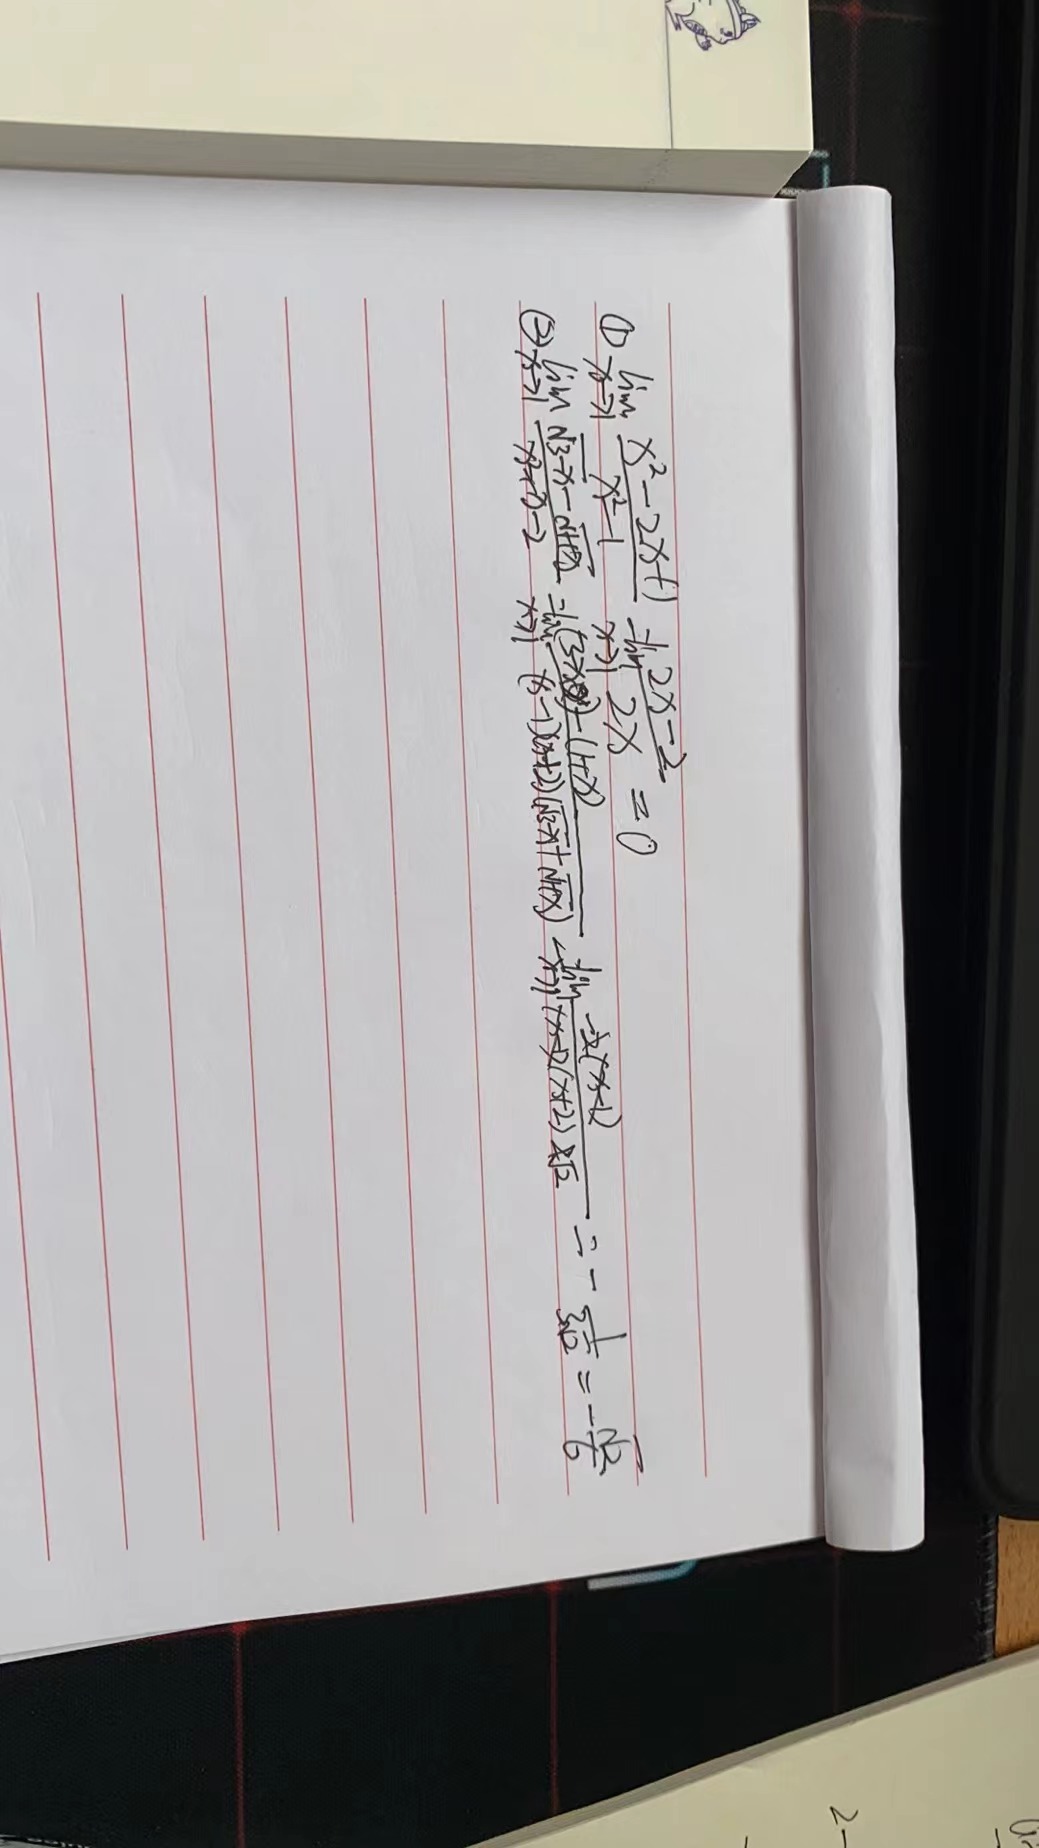 ① lim x→1 (x²-2x+1)/(x²-1) = lim x→1 (2x-2)/(2x) = 0
② lim x→1 (√(3-x)-√(1+x))/(x²+x-2) = lim x→1 ((3-x)-(1+x))/((x-1)(x+2)(√(3-x)+√(1+x))) = lim x→1 (-2(x-1))/((x-1)(x+2)2√2) = -1/(3√2) = -√2/6